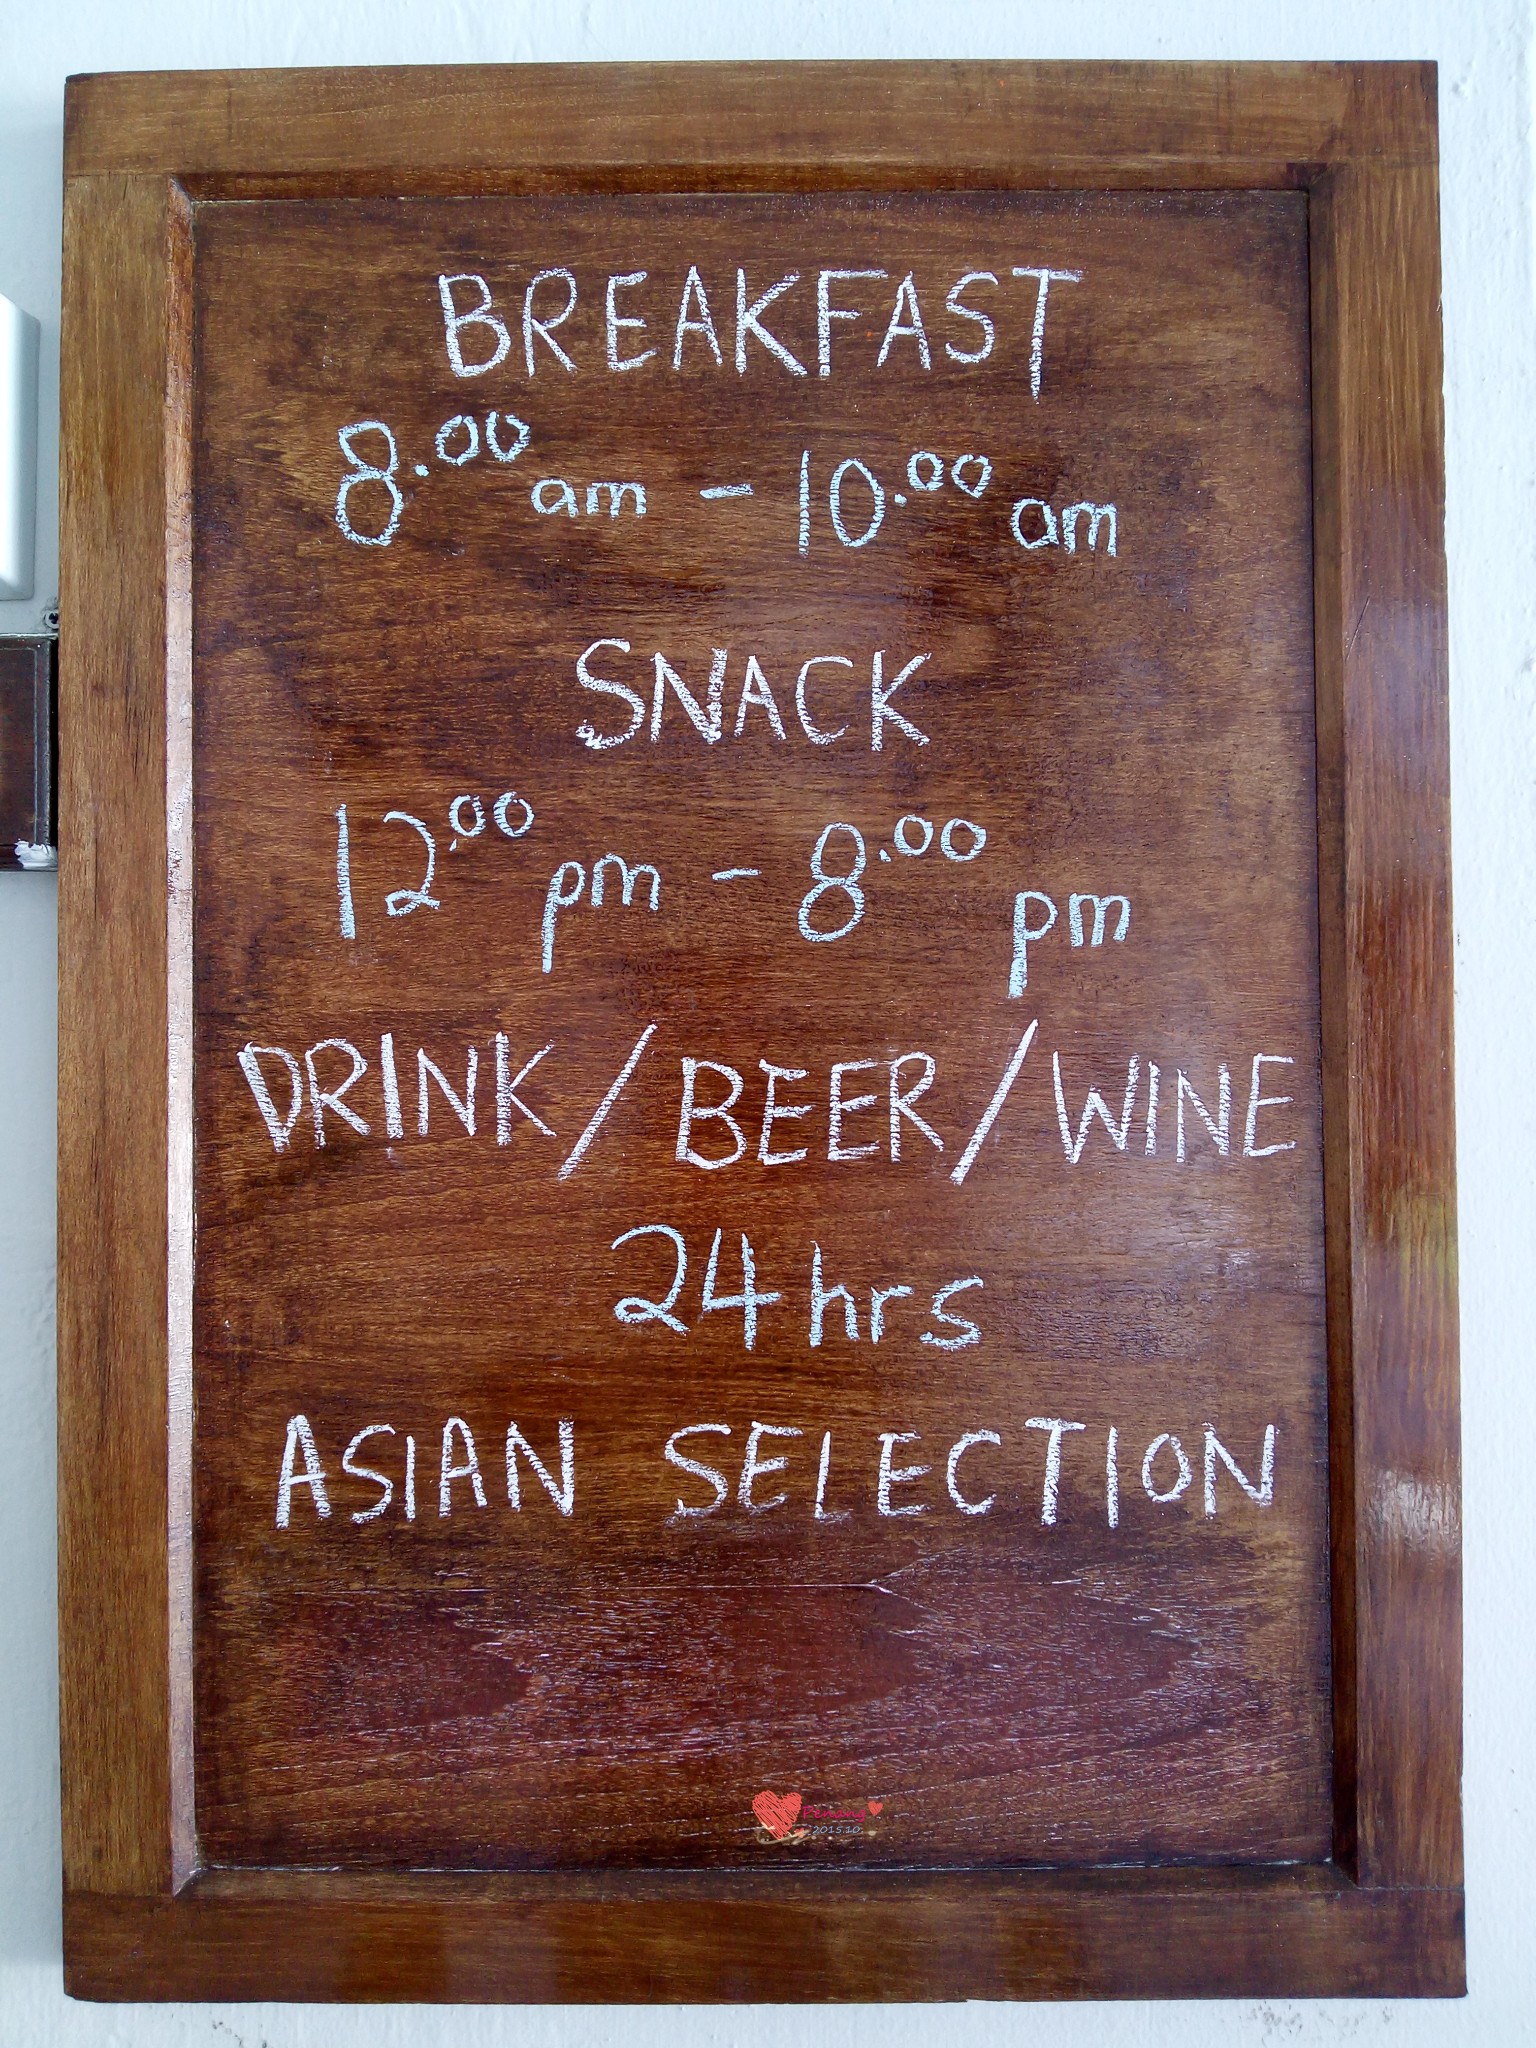 BREAKFAST
8.00 am - 10.00 am
SNACK
12.00 pm - 8.00 pm
DRINK/BEER/WINE
24 hrs
ASIAN SELECTION
Penang
2015.10